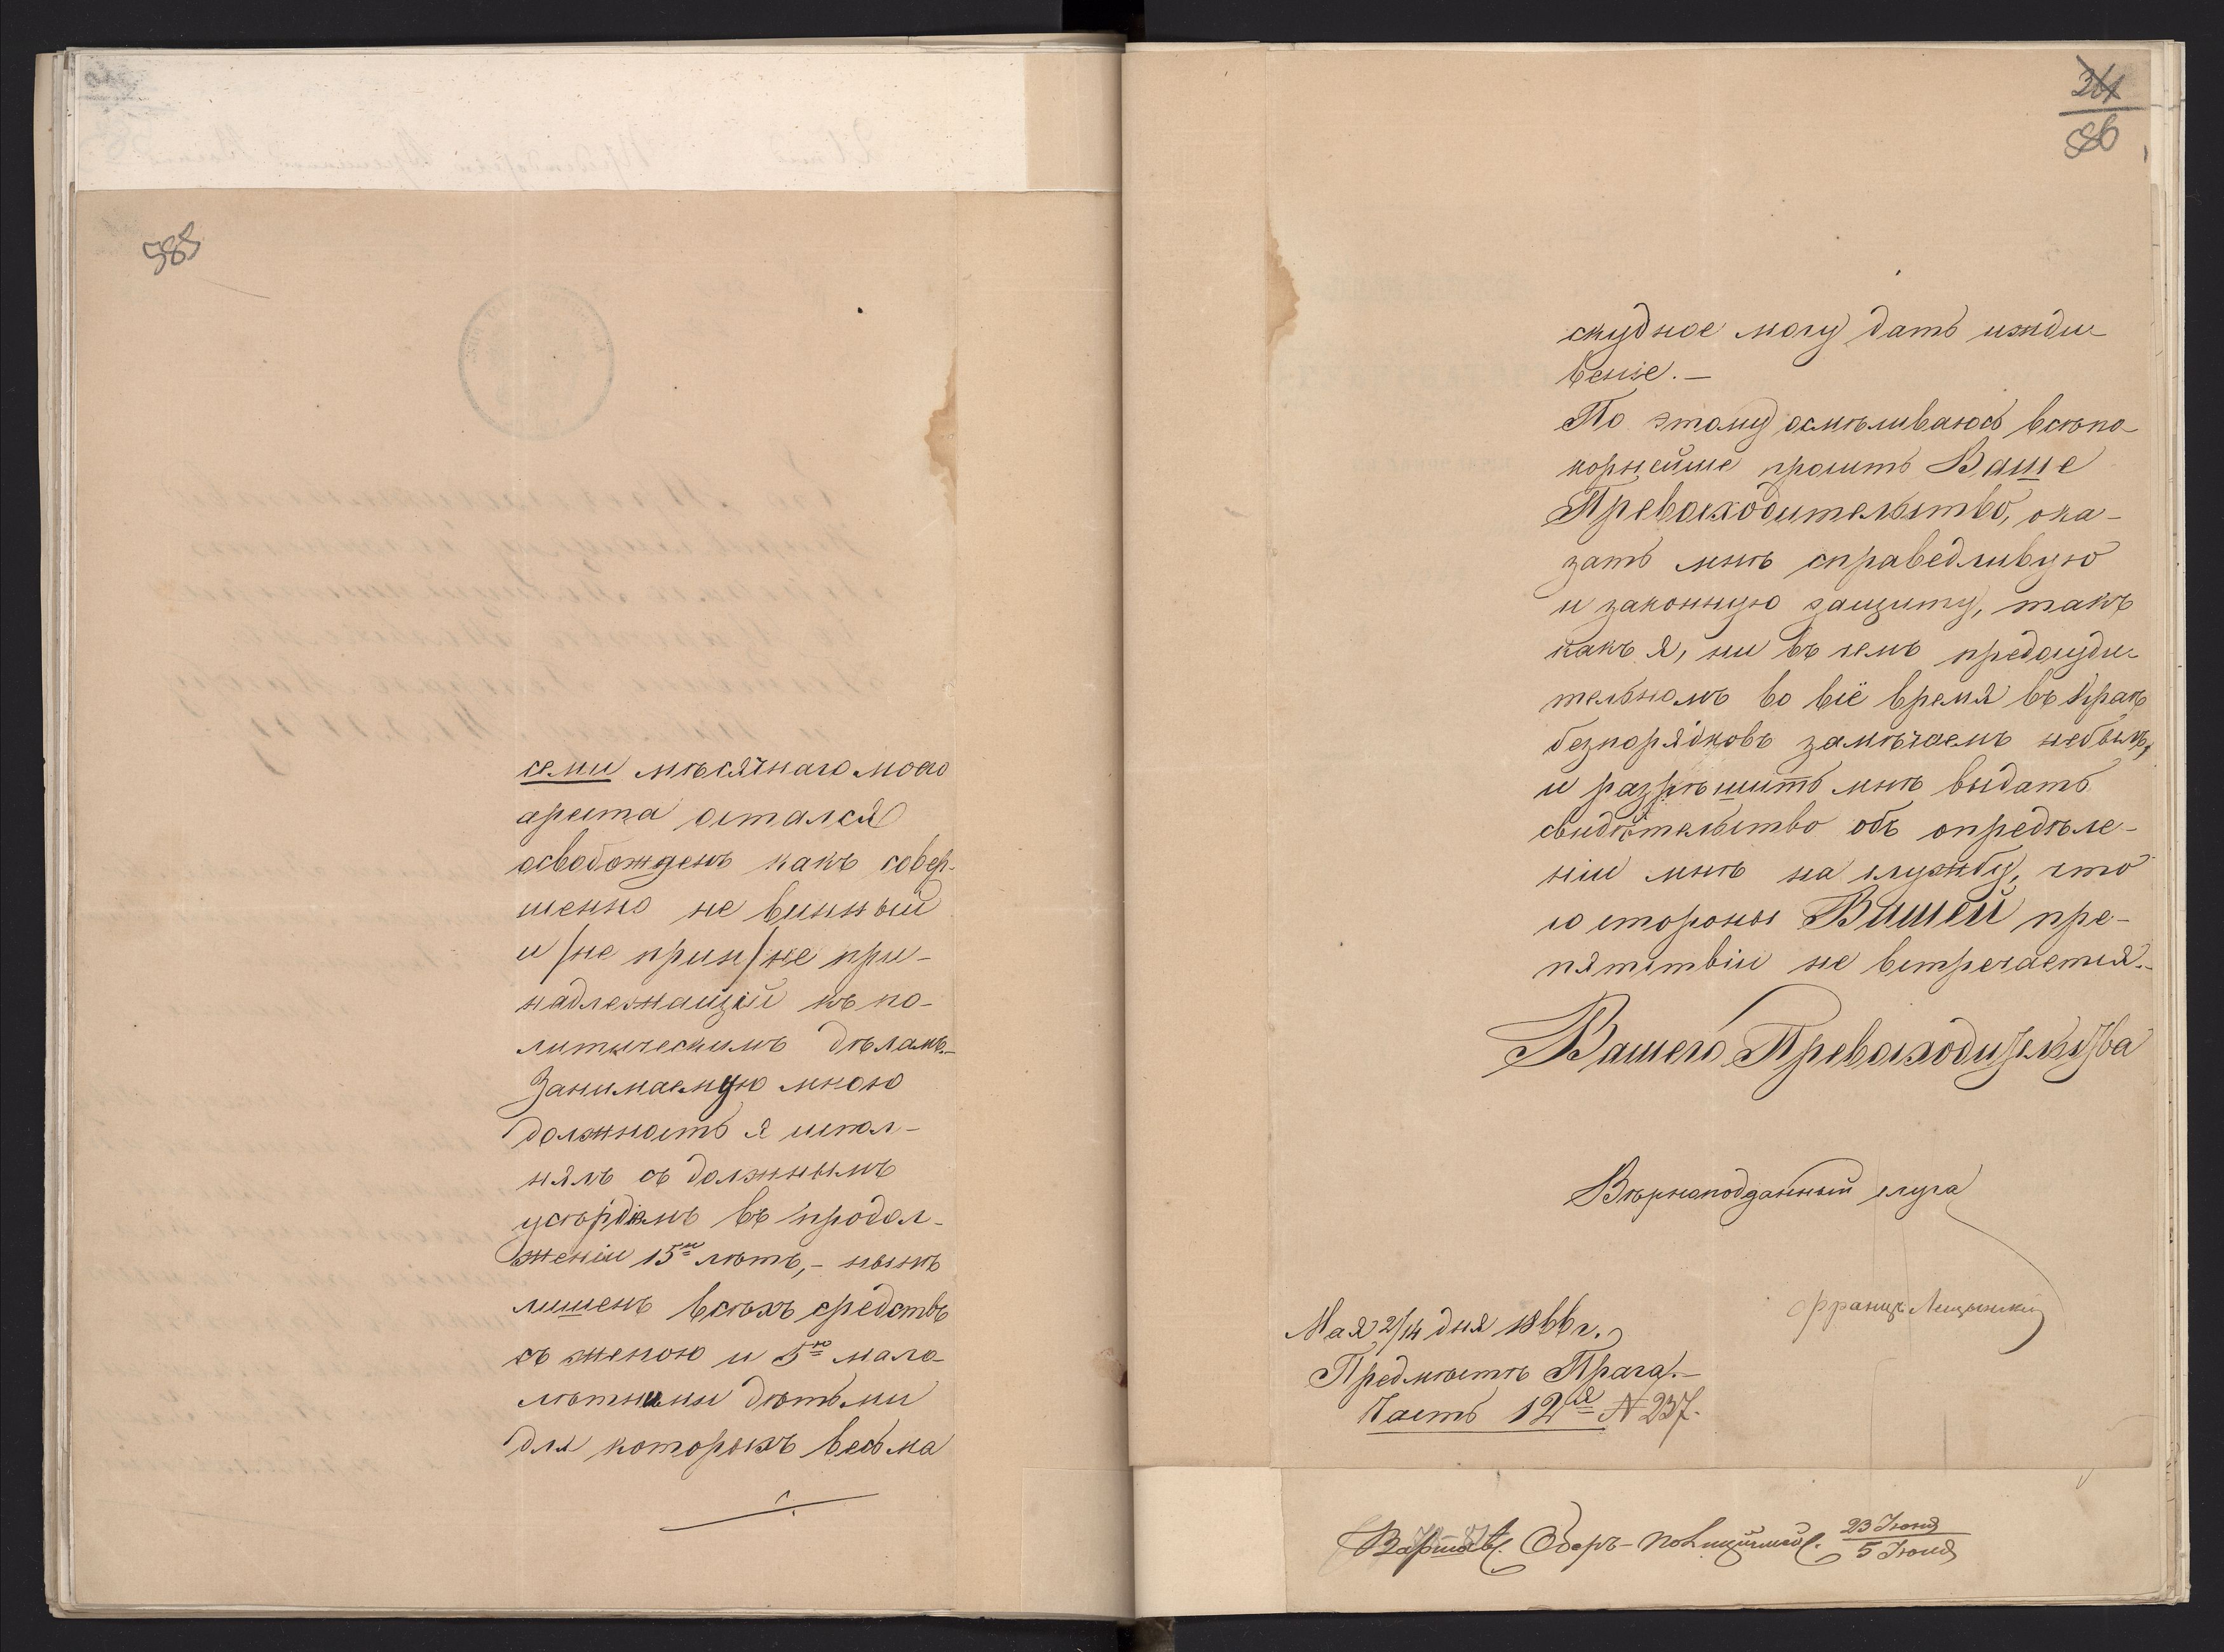 585
семи мѣсячнаго моего
ареста остался
освобожденъ какъ совер-
шенно не винный
и /не прин/ не при-
надлежащій къ по-
литическимъ дѣламъ.-
Занимаемую мною
должность я испол-
нялъ съ должнымъ
усѣрдіемъ въ продол-
женіи 15ти лѣтъ,- нынѣ
лишенъ всѣхъ средствъ
съ женою и 5ю мало-
лѣтными дѣтьми
для которыхъ весьма
361
586
скудное могу дать ижди-
веніе.-
По этому осмѣливаюсь всѣпо-
корнейше просить Ваше
Превосходительство, ока-
зать мнѣ справедливую
и законную защиту, такъ
какъ я, ни въ чемъ предосуди-
тельномъ во всё время въ краѣ
безпорядковъ замѣчаемъ небылъ,
и разрѣшить мнѣ выдать
свидѣтельство объ опредѣле-
ніи мнѣ на службу, что
со стороны Вашей пре-
пятствіи не встречается.-
Вашего Превосходительства
Вѣрноподданный слуга
Францъ Лищинскій
Мая 2/14 дня 1866 г.
Предмѣстѣ Прага.-
Часть 12я N 237.
Варшавс. Оберъ-полиціймейс. 23 Іюня
5 Іюля